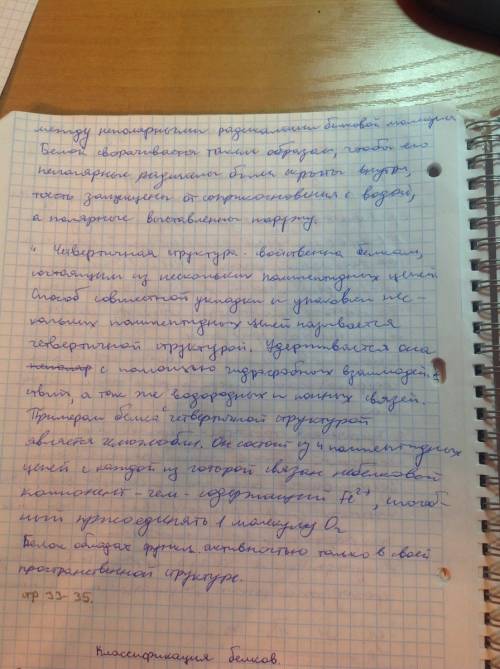 между неполярными радикалами белковой молекулы
Белок сворачивается таким образом, чтобы его
неполярные радикалы были скрыты внутри,
тоесть защищены от соприкосновения с водой,
а полярные выставлены наружу.
4. Четвертичная структура - свойственна белкам,
состоящим из нескольких полипептидных цепей.
Способ совместной укладки и упаковки нес-
кольких полипептидных цепей называется
четвертичной структурой. Удерживается она
с помощью гидрофобных взаимодей-
ствий, а так же водородных и ионных связей.
Примером белка с четвертичной структурой
является гемоглобин. Он состоит из 4 полипептидных
цепей с каждой из которой связан небелковой
компонент - гем - содержащий Fe²⁺, способ-
ный присоединять 1 молекулу O₂
Белок обладает функц. активностью только в своей
пространственной структуре.
стр 33-35.
Классификация белков.